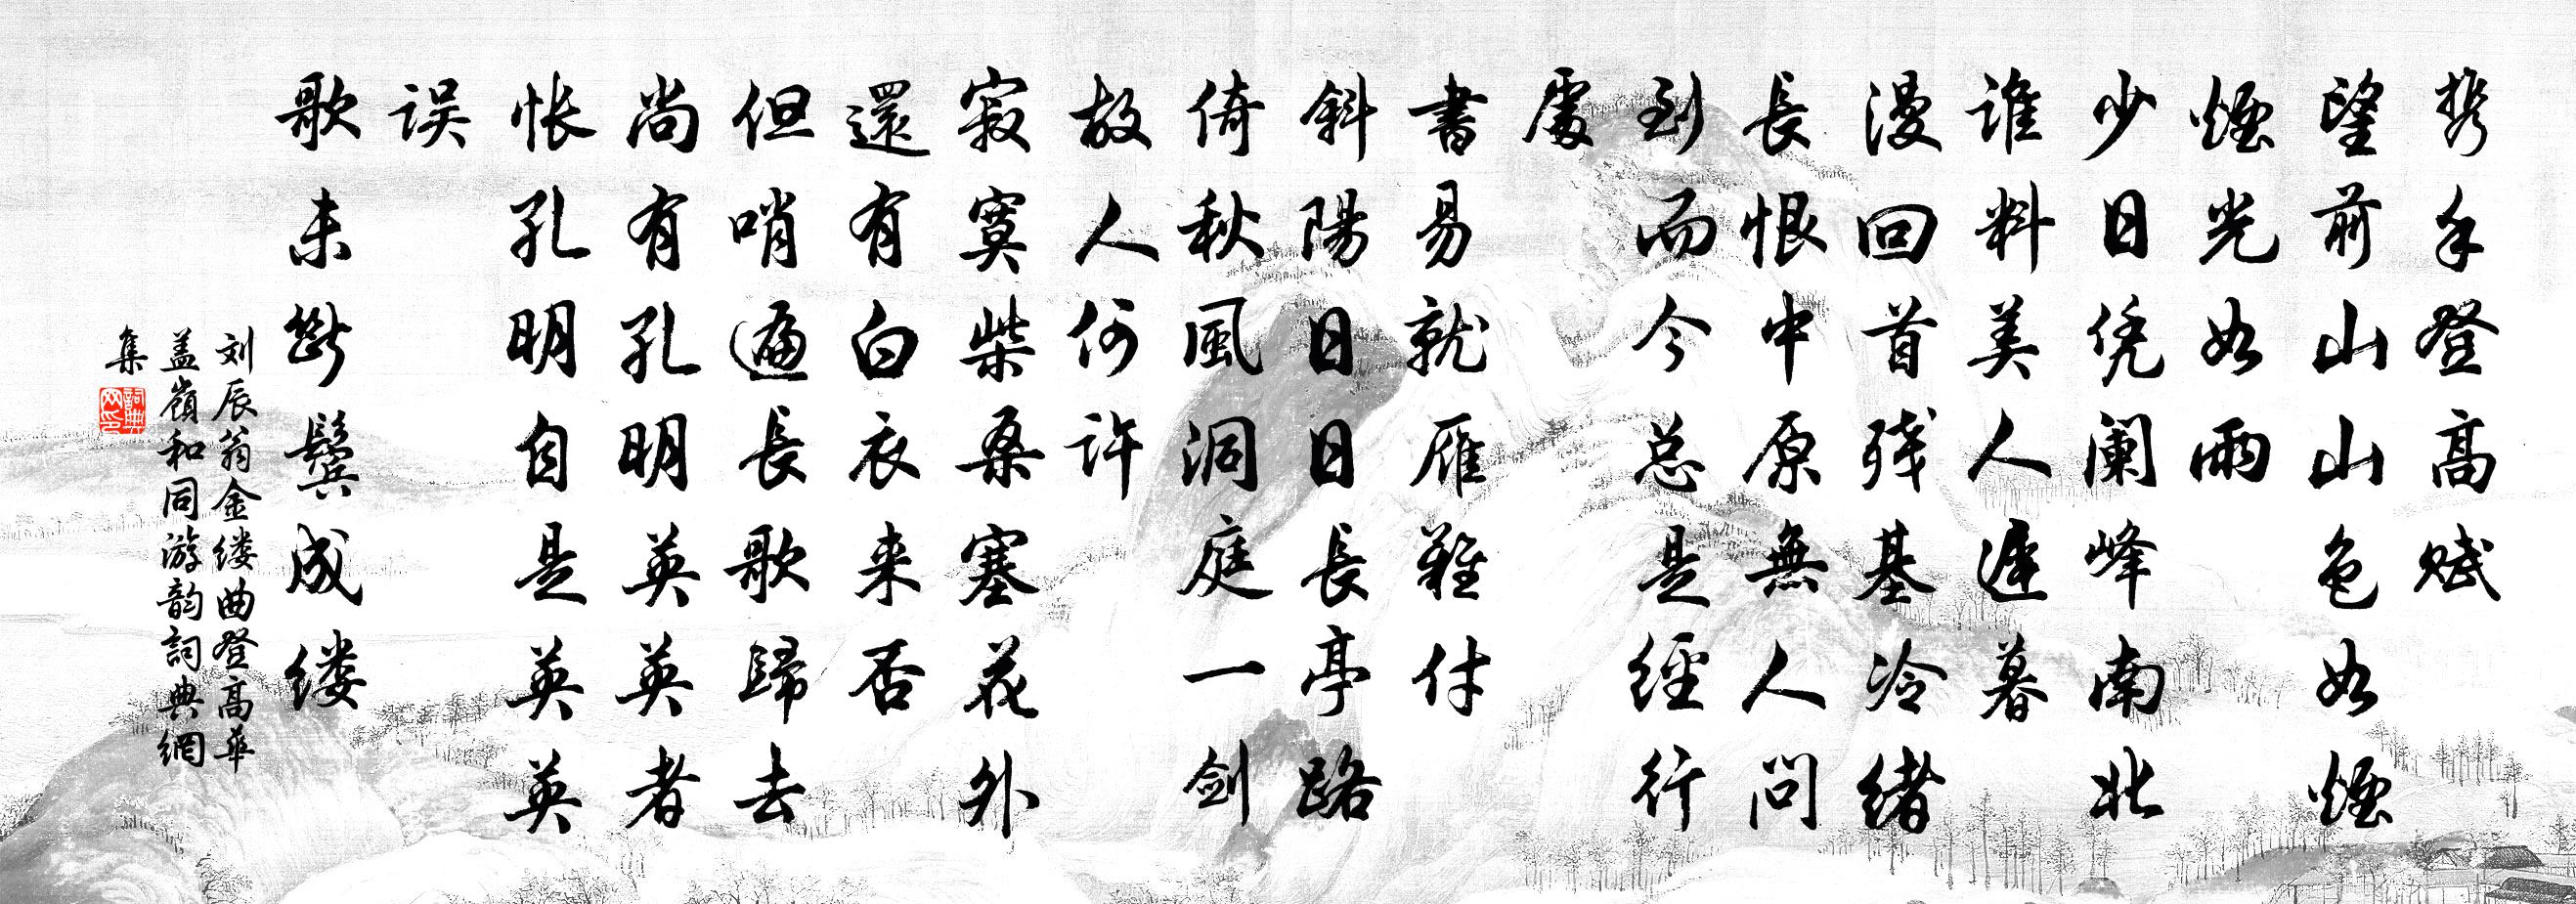 携手登高赋
望前山山色如煙
煙光如雨
少日凭阑峰南北
谁料美人遲暮
漫回首残基冷绪
長恨中原無人问
到而今总是經行
處
書易就雁難付
斜陽日日長亭路
倚秋風洞庭一剑
故人何许
寂寞柴桑寒花外
還有白衣来否
但哨遍長歌歸去
尚有孔明英英者
怅孔明自是英英
误
歌未断鬓成缕
刘辰翁金缕曲登高華
盖嶺和同游韵詞典網
集
詞典
网印